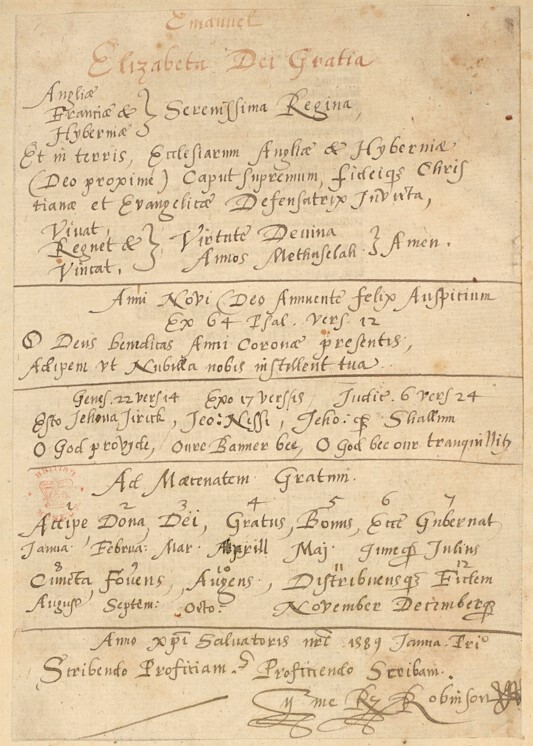 Emanuel
Elizabeta Dei Gratia
Angliæ
Franciæ & } Serenissima Regina,
Hyberniæ
Et in terris, Ecclesiarum Angliæ & Hyberniæ
(Deo proxime) Caput supremum, fideiqs Chris
tianæ et Evangelicæ Defensatrix Invicta,
Vivat,
Regnet & } Virtute Devina } Amen.
Vincat, Annos Methuselah
Anni Novi (Deo Annuente felix Auspicium
Ex 64 Psal. vers. 12
O Deus benedicas Anni Coronæ presentis,
Adipem ut Nubilla nobis instillent tua.
Genes. 22 vers 14 Exo 17 versis Judic. 6 vers 24
Esto Jehova Jirick, Jeo: Nissi, Jeho: qs Shallum
O God provyde, Oure Banner bee, O God bee our tranquillity
Ad Mæcenatem Gratum.
1 2 3 4 5 6 7
Accipe Dona Dei, Gratus, Bonus, Ecce Gubernat
Janua: Februa: Mar: Aprill Maj: June qs Julius
8 10 12
Cuncta, Fovens, Augens, Distribuensqs Eidem
August Septem: Octo: November Decemberqs
Anno xpi Salvatoris nrt 1589 Janua. Prio
Scribendo Proficiam. Proficiendo Scribam.
Ry Robinson